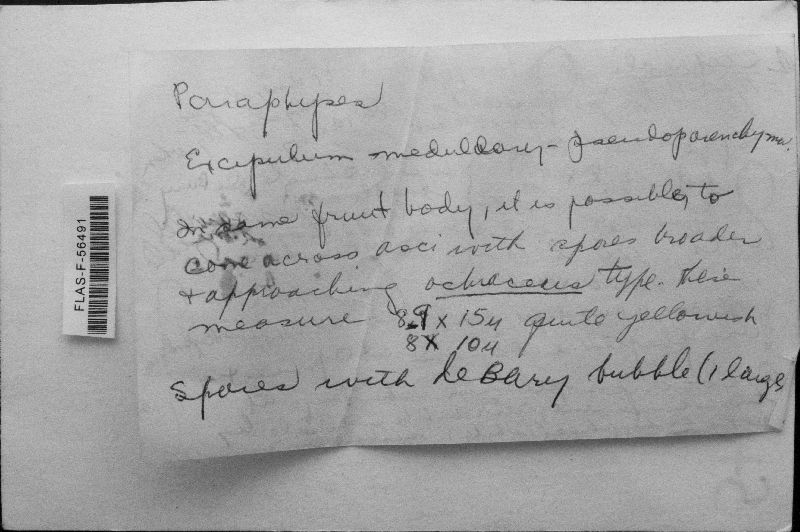 Paraphyses
Excipulum medullary - pseudoparenchyma.
In same fruit body, it is possible to
come across asci with spores broader
& approaching ochraceus type. these
measure 8.9 x 15 µ quite yellowish
8 x 10 µ
Spores with de Bary bubble (1 large
FLAS-F-56491